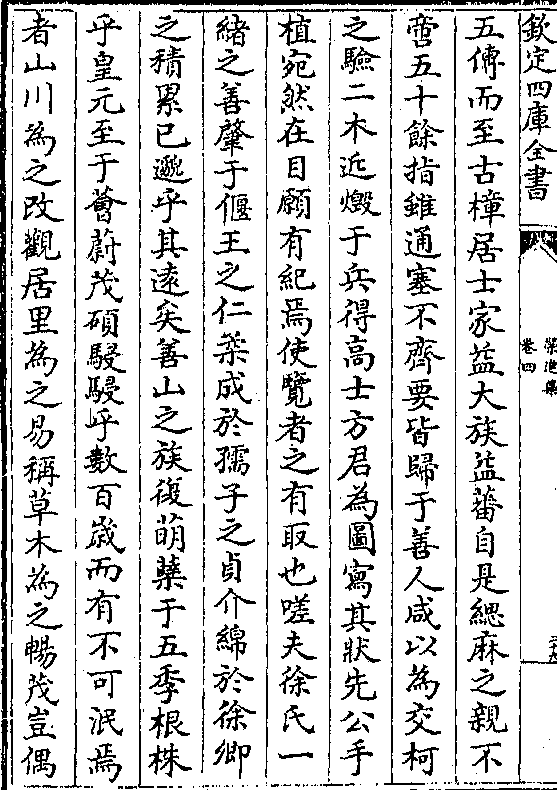 欽定四庫全書
卷四
五傳而至古樟居士家益大族益蕃自是緦麻之親不
啻五十餘指雖通塞不齊要皆歸于善人咸以為交柯
之驗二木近燬于兵得高士方君為圖寫其狀先公手
植宛然在目願有紀焉使覽者之有取也嗟夫徐氏一
緒之善肇于偃王之仁葉成於孺子之貞介綿於徐卿
之積累已邈乎其遠矣善山之族復萌蘖于五季根株
乎皇元至于薈蔚茂碩駸駸乎數百歲而有不可泯焉
者山川為之改觀居里為之易稱草木為之暢茂豈偶